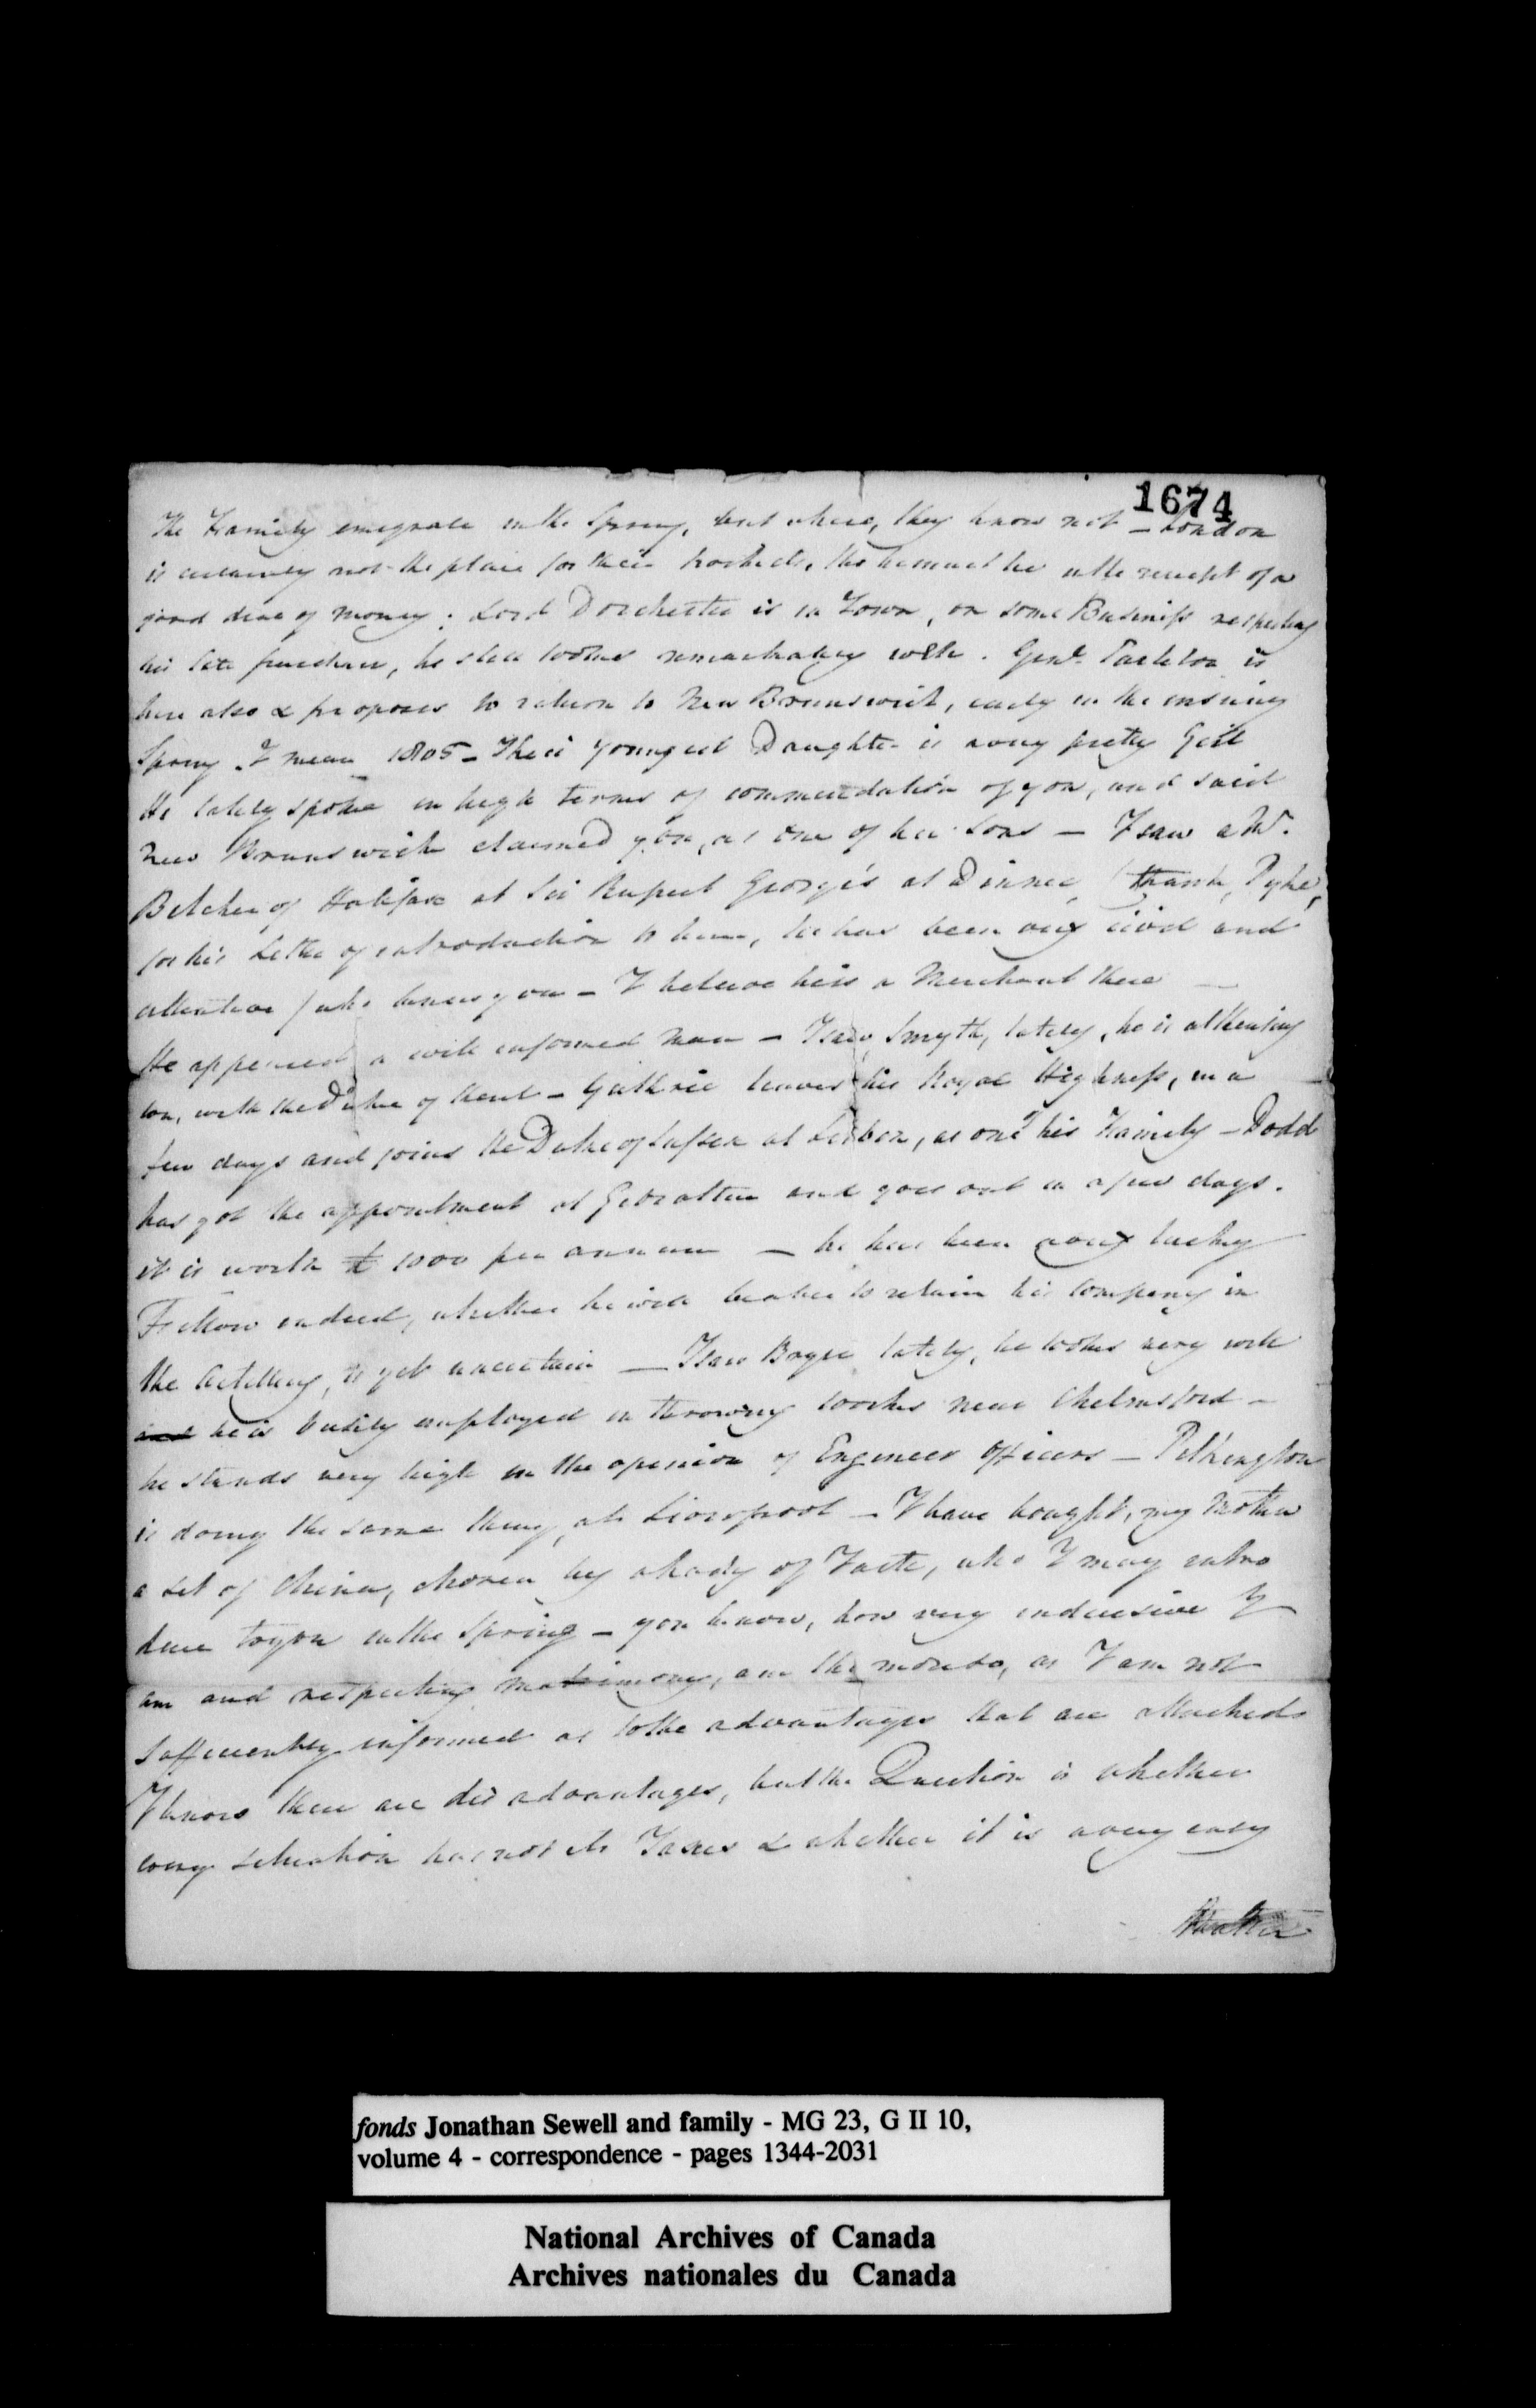 1674
The Family emigrate in the Spring, but where, they know not – London
is certainly not the place for their pockets, tho he must be in the receipt of a
good deal of money. Lord Dorchester is in Town, on some Business respecting
his late purchase, he still looks remarkably well. Genl. Carleton is
here also & proposes to return to New Brunswick, early in the ensuing
Spring I mean 1805 – Their youngest Daughter is a very pretty Girl
He lately spoke in high terms of commendation of you, and said
New Brunswick claimed you, as one of her Sons – I saw a Mr.
Belcher of Halifax at Sir Rupert George's at Dinner, (thank Pyke,
for his Letter of introduction to him, he has been very civil and
attentive) who knows you – I believe he is a Merchant there —
He appeared a well informed man – I saw Smyth, lately, he is at Kensing
ton, with the Duke of Kent – Guthrie leaves his Royal Highness, in a
few days and joins the Duke of Sussex at Lisbon, as one of his Family – Dodd
has got the appointment at Gibralter and goes out in a few days.
it is worth £ 1000 per annum – he has been a very lucky
Fellow indeed, whether he will be able to retain his Company in
the Artillery, is yet uncertain — I saw Bryce lately, he looks very well
and he is busily employed in throwing works near Chelmsford –
he stands very high in the opinion of Engineer Officers – Pilkington
is doing the same thing, at Liverpool – I have bought, my Mother
a set of China, chosen by a Lady of Taste, who I may intro
duce to you in the Spring – you know, how very indecisive I
am and respecting matrimony, am the more so, as I am not
sufficiently informed as to the advantages that are attached
I know there are disadvantages, but the Question is whether
every situation has not its Taxes & whether it is a very easy
Matter
fonds Jonathan Sewell and family - MG 23, G II 10,
volume 4 - correspondence - pages 1344-2031
National Archives of Canada
Archives nationales du Canada